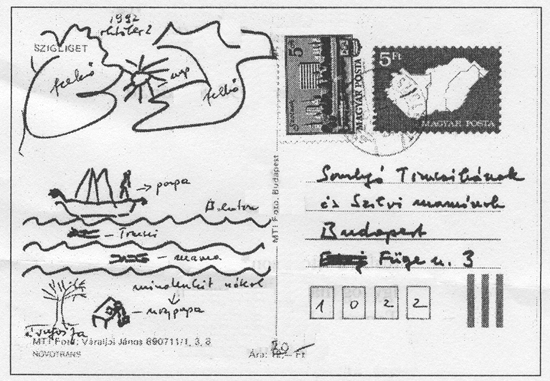 1992
október 2
SZIGLIGET
felhő
nap
felhő
papa
Trucsi
mama
mindenkit nőkel
nagypapa
MTI Fotó: Váraljai János 890711/1, 3, 8
NOVOTRANS
Ára: 20,- Ft
MTI Fotó, Budapest
5 Ft
MAGYAR POSTA
5 Ft
MAGYAR POSTA
és Szilvi mamának
Budapest
Füge u. 3
1 0 2 2